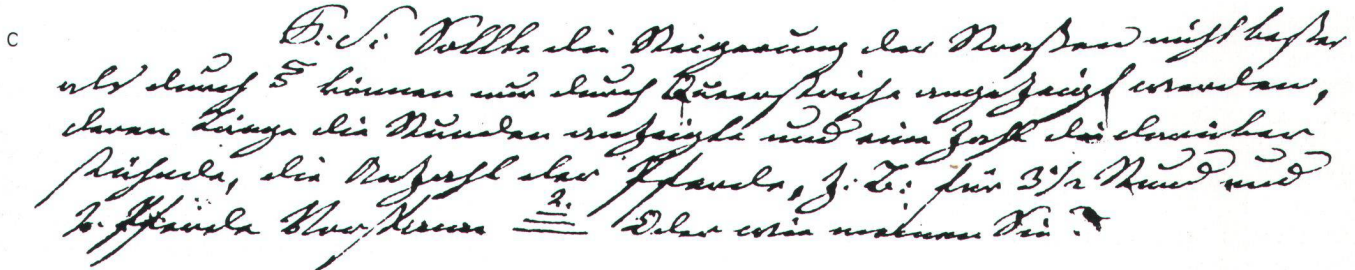 c
P. S. Sollte die Steigerung der Straßen nicht beßer
als durch § können nur durch Queerstriche angezeigt werden,
deren Länge die Stunden anzeigte und eine Zahl die darüber
stühnde, die Anzahl der Pferde, z. B. für 3 1/2 Stund und
2. Pferde Vorspann 2. Oder wie meinen Sie?